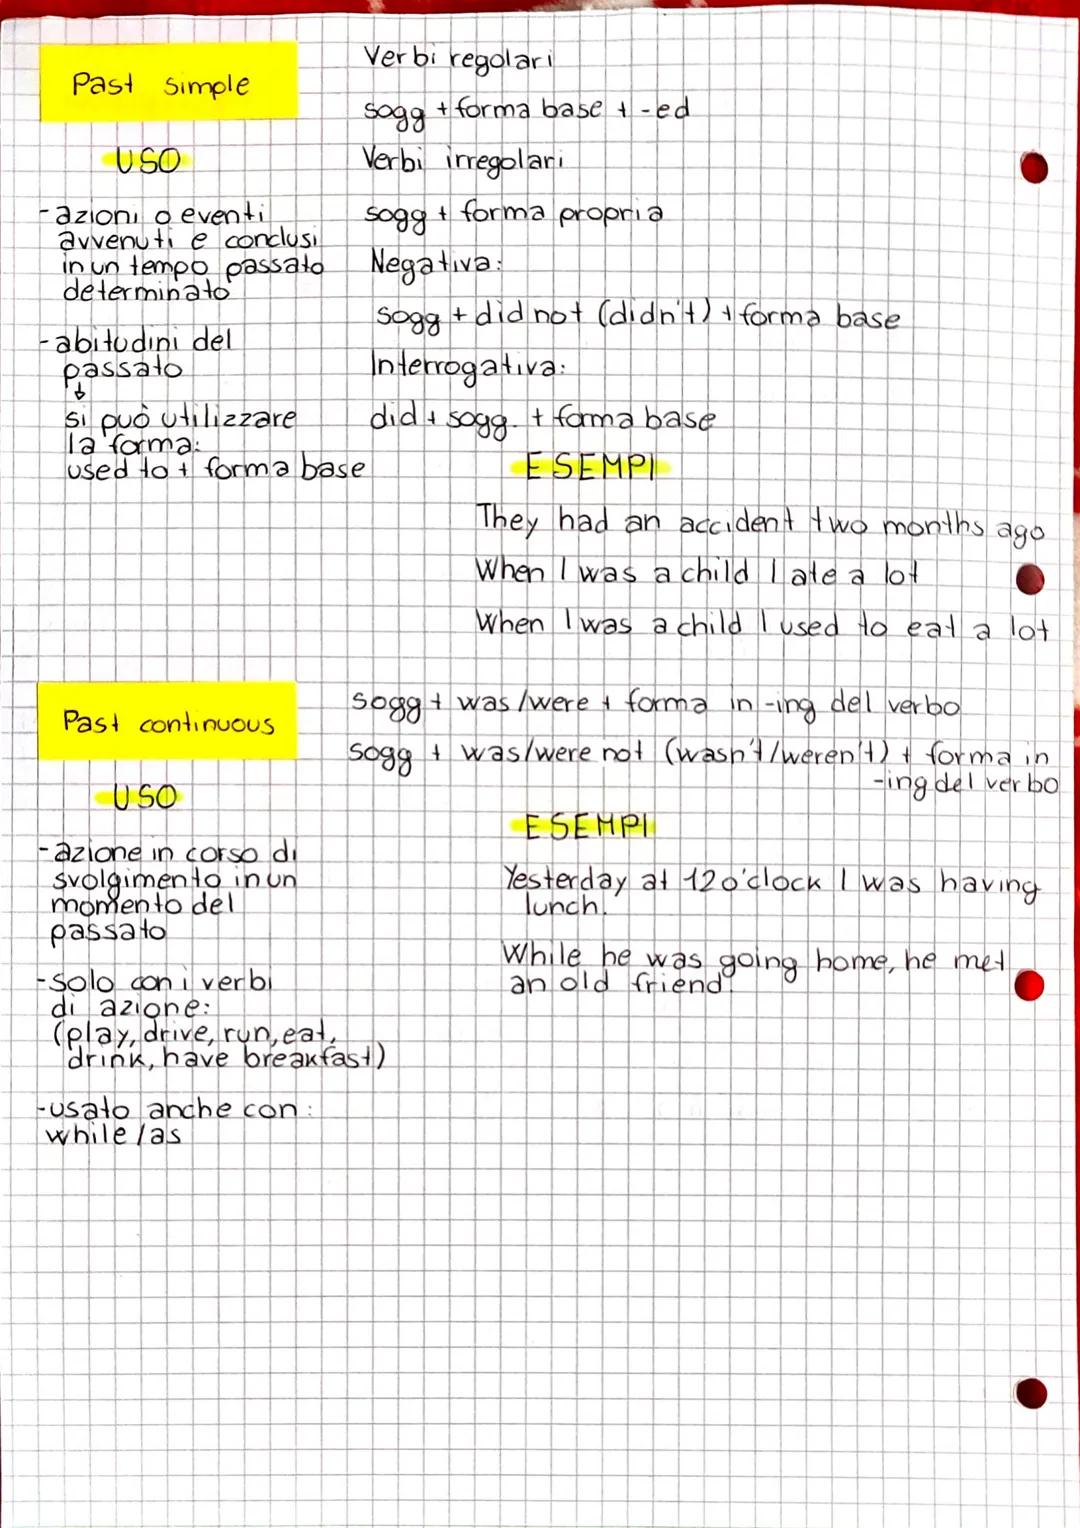 Past simple
USO
-azioni o eventi
avvenuti e conclusi
in un tempo passato
determinato
-abitudini del
passato
↓
si può utilizzare
la forma:
used to + forma base
Verbi regolari
sogg + forma base + -ed
Verbi irregolari
sogg + forma propria
Negativa:
sogg + did not (didn't) + forma base
Interrogativa:
did + sogg. + forma base
ESEMPI
They had an accident two months ago
When I was a child I ate a lot
When I was a child I used to eat a lot
Past continuous
USO
-azione in corso di
svolgimento in un
momento del
passato
-solo con i verbi
di azione:
(play, drive, run, eat,
drink, have breakfast)
-usato anche con:
while/as
sogg + was/were + forma in -ing del verbo
sogg + was/were not (wasn't/weren't) + forma in
-ing del verbo
ESEMPI
Yesterday at 12 o'clock I was having
lunch.
While he was going home, he met
an old friend.